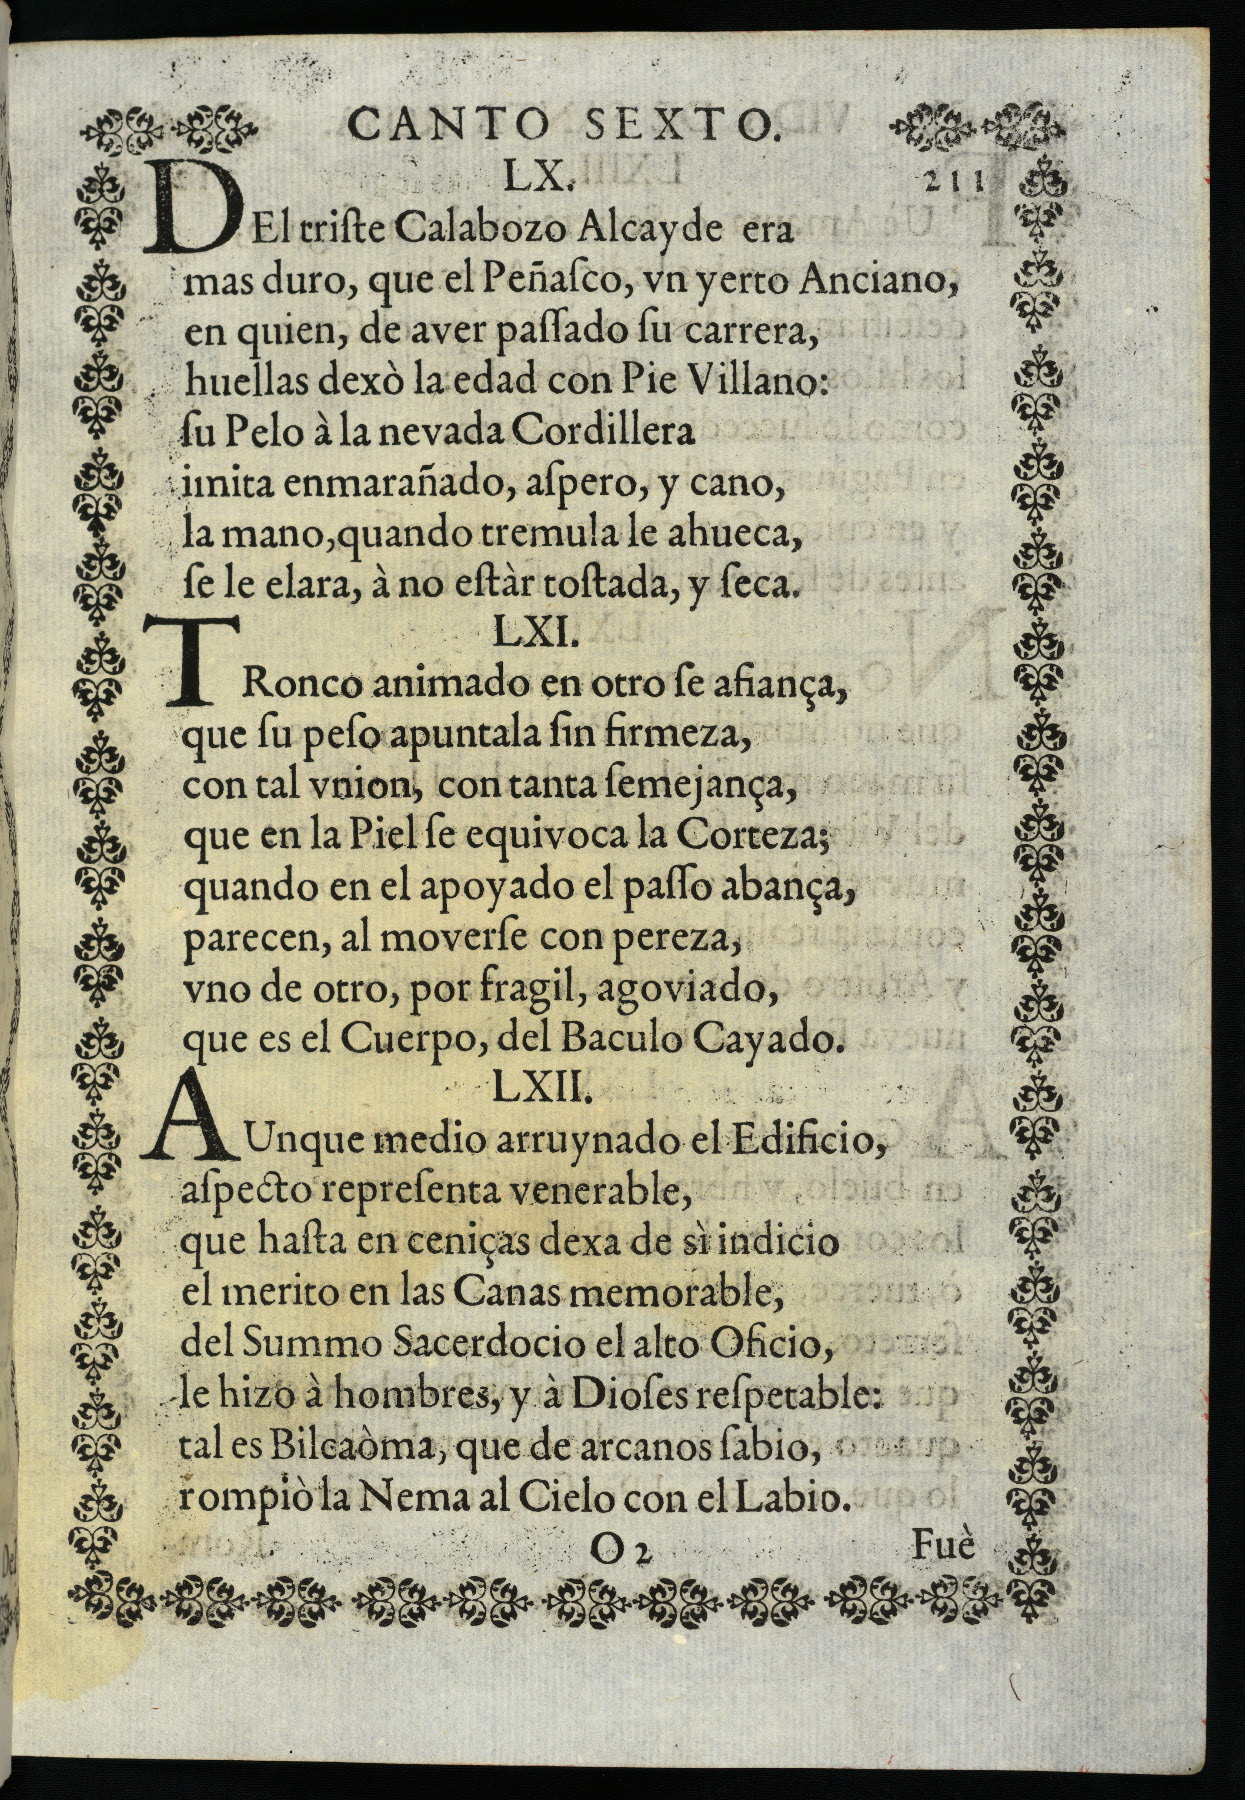 CANTO SEXTO.
LX. 211
DEl triſte Calabozo Alcayde era
mas duro, que el Peñaſco, vn yerto Anciano,
en quien, de aver paſſado ſu carrera,
huellas dexò la edad con Pie Villano:
ſu Pelo à la nevada Cordillera
imita enmarañado, aſpero, y cano,
la mano,quando tremula le ahueca,
ſe le elara, à no eſtàr toſtada, y ſeca.
LXI.
TRonco animado en otro ſe afiança,
que ſu peſo apuntala ſin firmeza,
con tal vnion, con tanta ſemejança,
que en la Piel ſe equivoca la Corteza;
quando en el apoyado el paſſo abança,
parecen, al moverſe con pereza,
vno de otro, por fragil, agoviado,
que es el Cuerpo, del Baculo Cayado.
LXII.
AUnque medio arruynado el Edificio,
aſpecto repreſenta venerable,
que haſta en ceniças dexa de sì indicio
el merito en las Canas memorable,
del Summo Sacerdocio el alto Oficio,
le hizo à hombres, y à Dioſes reſpetable:
tal es Bilcaòma, que de arcanos ſabio,
rompiò la Nema al Cielo con el Labio.
O 2 Fuè